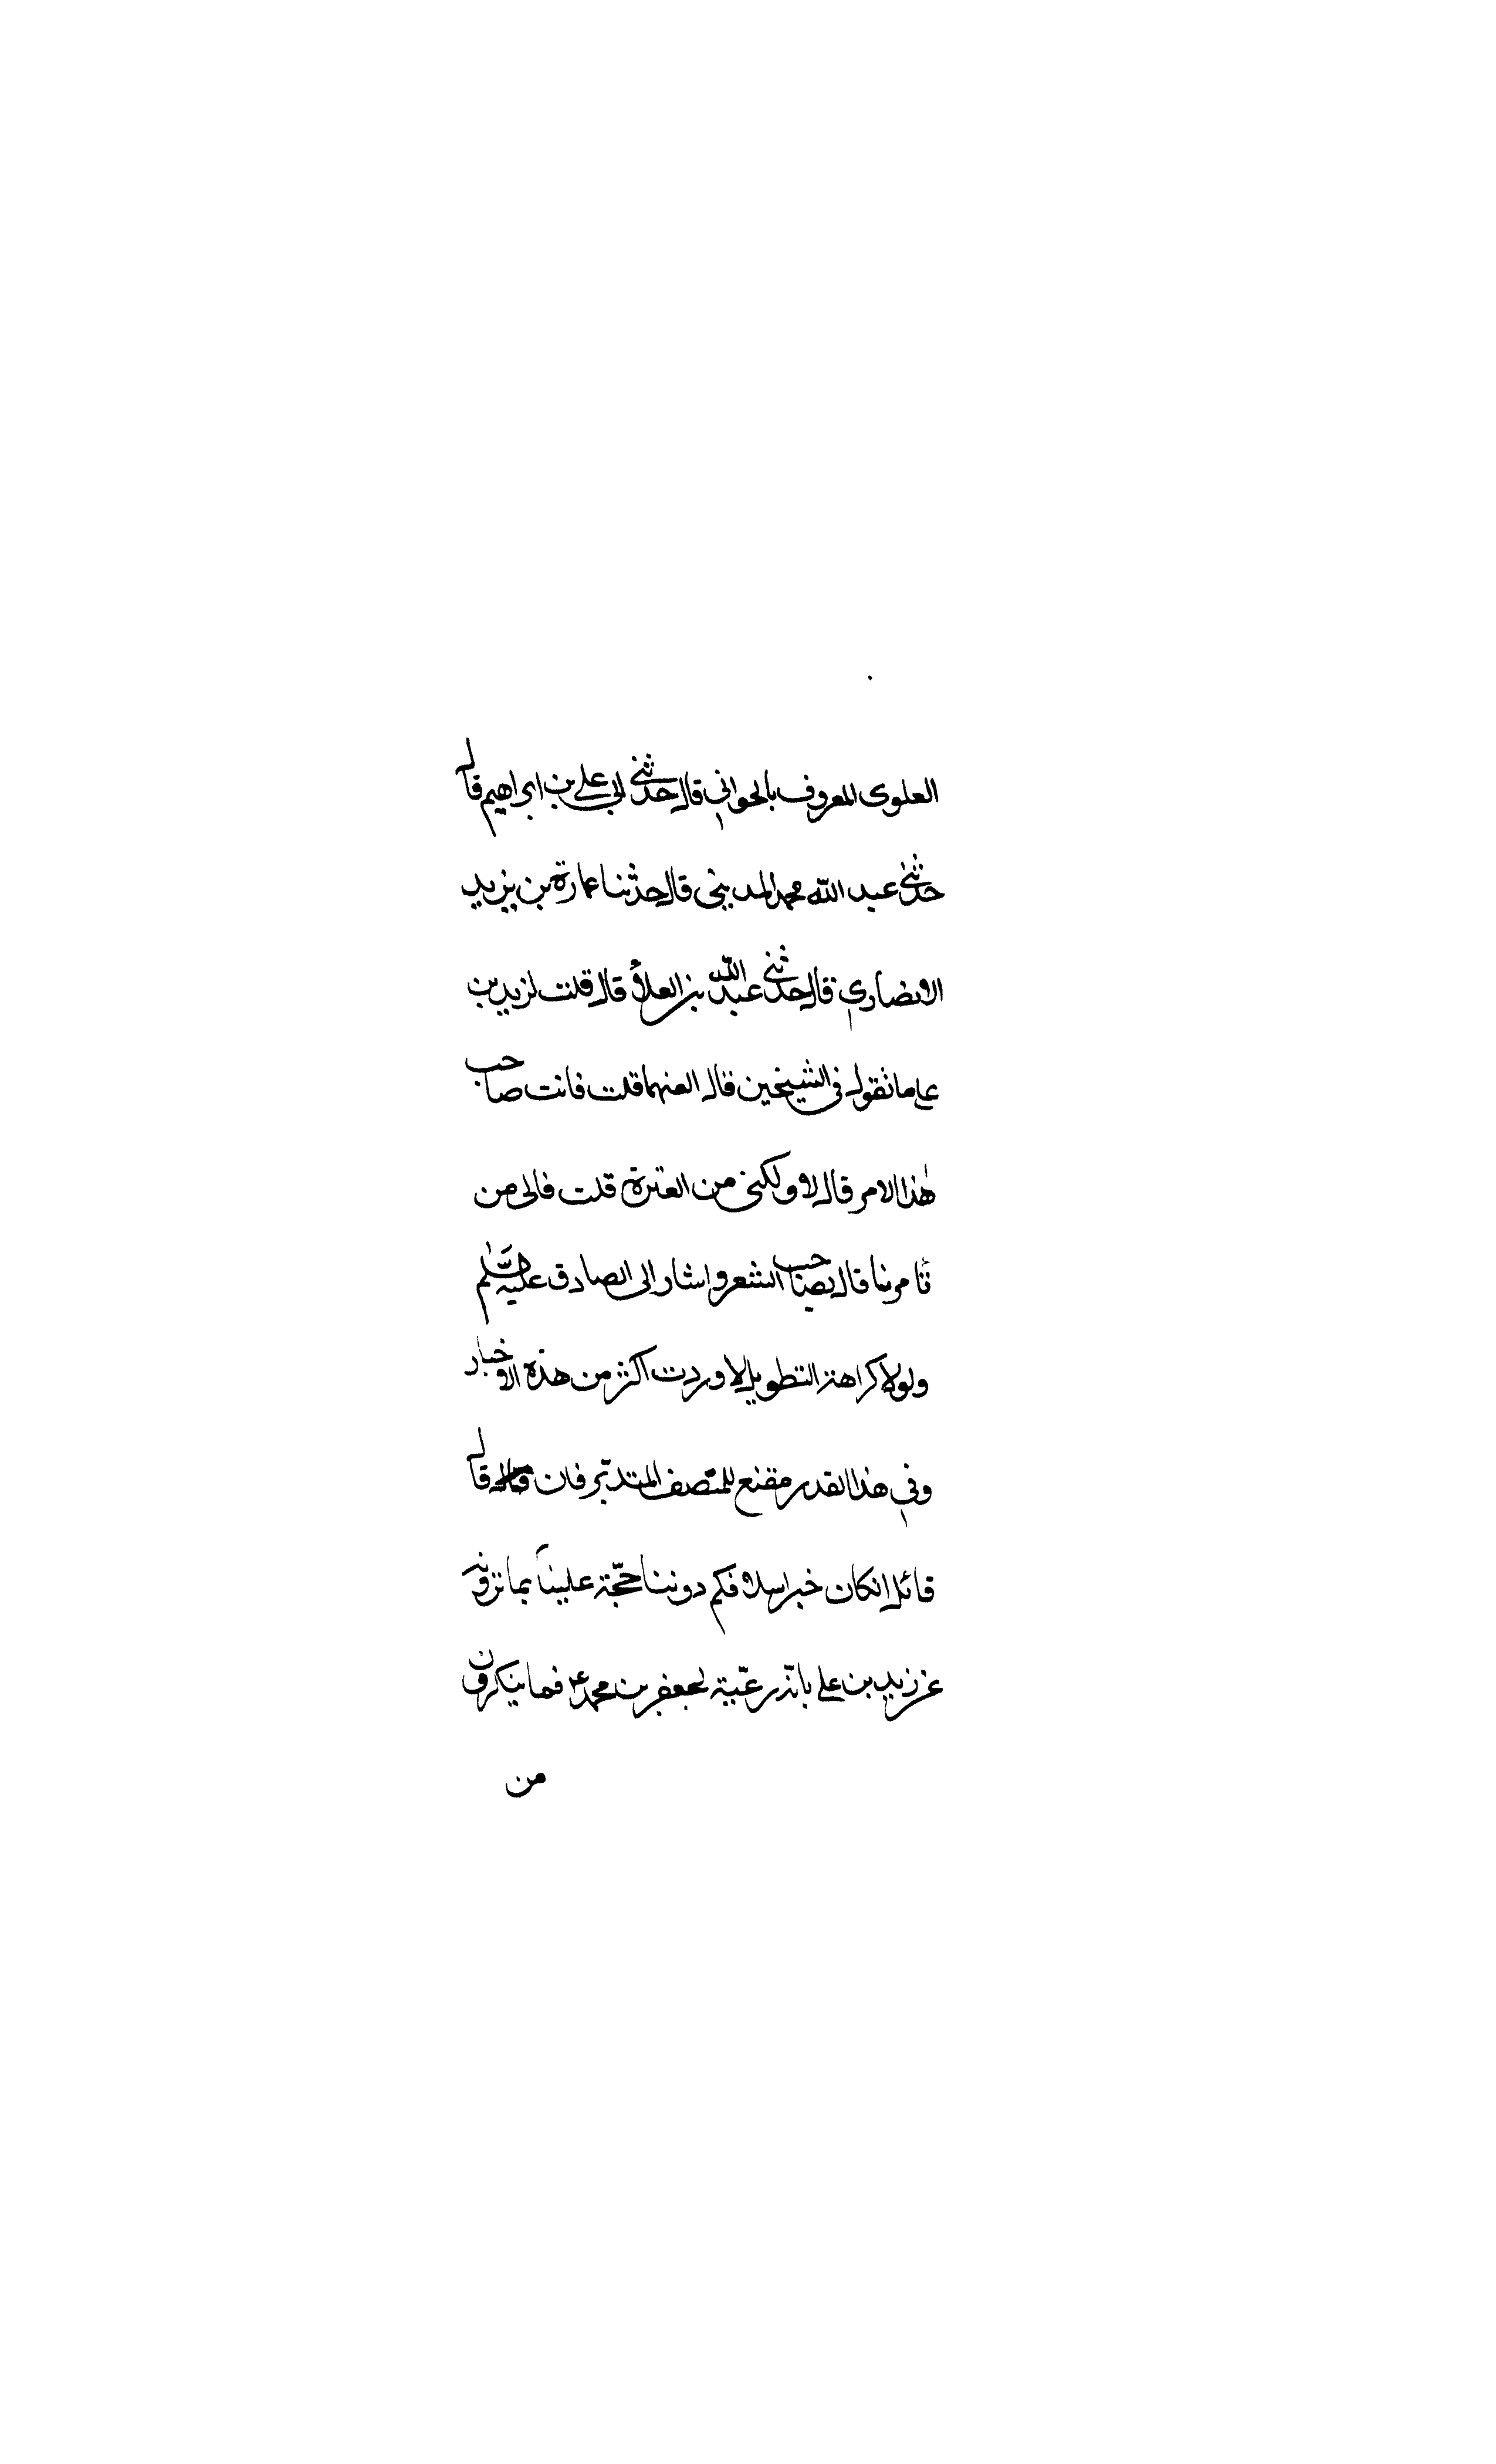 العلوى المعروف بالجواني قال حدثني ابي علي بن ابراهيم قال
حدثني عبد الله محمد المديني قال حدثنا عمارة بن يزيد
الانصاري قال حدثني عبد الله بن العلاء قال قلت لزيد بن
علي ما تقول في الشيخين قال العنهما قلت فانت صاحب
هذا الامر قال لا ولكني من العترة قلت فالى من
تأمرنا قال بصاحب الشعر واشار الى الصادق عليه السلم
ولولا كراهة التطويل لاوردت اكثر من هذه الاخبار
وفي هذا القدر مقنع للمنصف المتدبّر فان قال
قائل ان كان خبر اسلافكم دوننا حجّة علينا بما ترونه
عن زيد بن علي بانّه رعيّة لجعفر بن محمد ع فما ينكرون
من